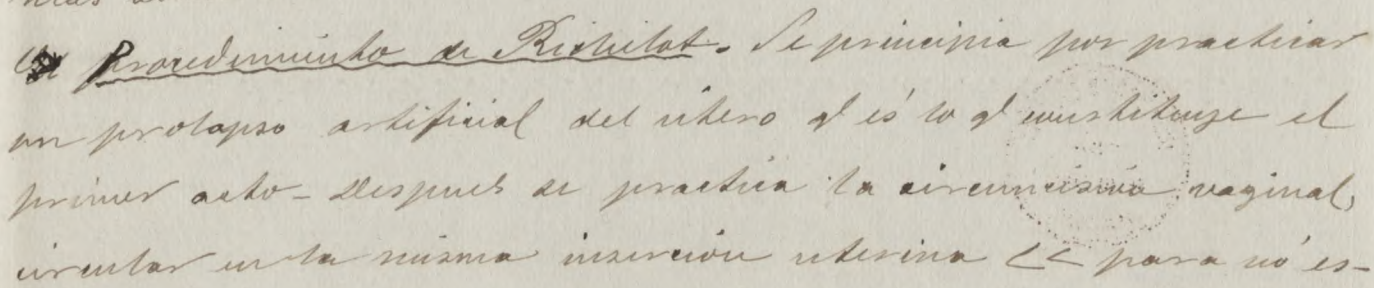 Procedimiento de Richelot. Se principia por practicar
un prolapso artificial del útero q' és lo q' constituye el
primer acto - Despues se practica la circuncisión vaginal,
circular en la misma inserción uterina << para nó es-